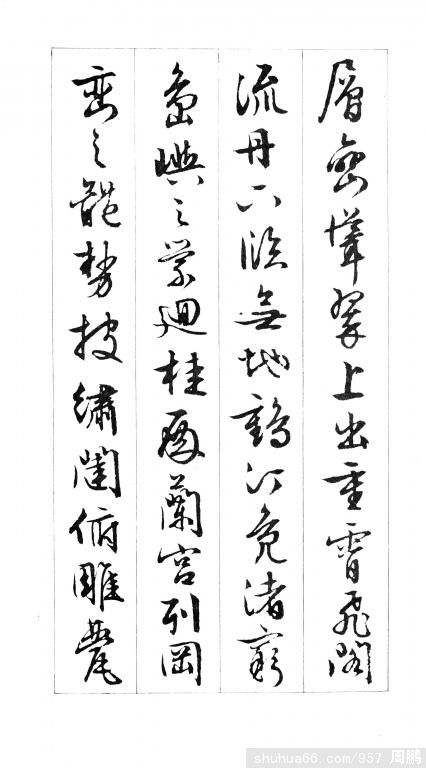 層巒聳翠上出重霄飛閣
流丹下臨無地鶴汀鳧渚窮
島嶼之縈迴桂殿蘭宮列岡
巒之體勢披繡闥俯雕甍
shuhua66.com/957 周鹏